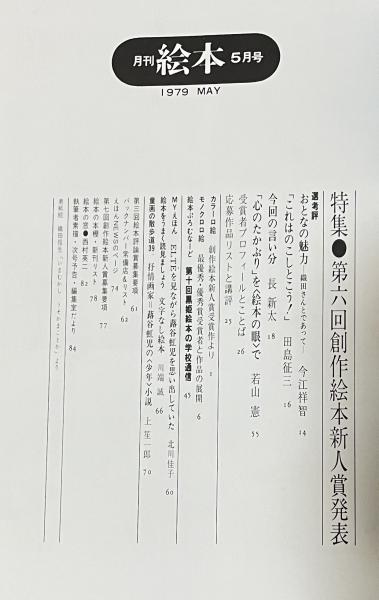 月刊 絵本 5月号
1979 MAY
特集●第六回創作絵本新人賞発表
選考評
おとなの魅力 織田さんとであって― 今江祥智 14
「これはのこしとこう!」 田島征三 16
今回の言い分 長 新太 18
「心のたかぶり」を〈絵本の眼〉で 若山 憲 55
受賞者プロフィールとことば 26
応募作品リストと講評 25
カラー口絵 創作絵本新人賞受賞作より 1
モノクロ口絵 最優秀・優秀賞受賞者と作品の展開 6
絵本ぷろむなーど 第十回黒姫絵本の学校通信 45
MYえほん ELTEを見ながら蕗谷虹児を思い出していた 北川佳子 60
絵本をうまく読見ましょう 文字なし絵本 川端 誠 66
童画の散歩道39 抒情画家=蕗谷虹児の〈少年〉小説 上 笙一郎 70
第三回絵本評論賞募集要項 61
バックナンバー常備店&リスト 62
えほんNEWSのページ 74
第七回創作絵本新人賞募集要項 77
絵本の本棚・新刊リスト 78
絵本の窓●西村英二 82
執筆者素描・次号予告・編集室だより 84
表紙絵 織田信生